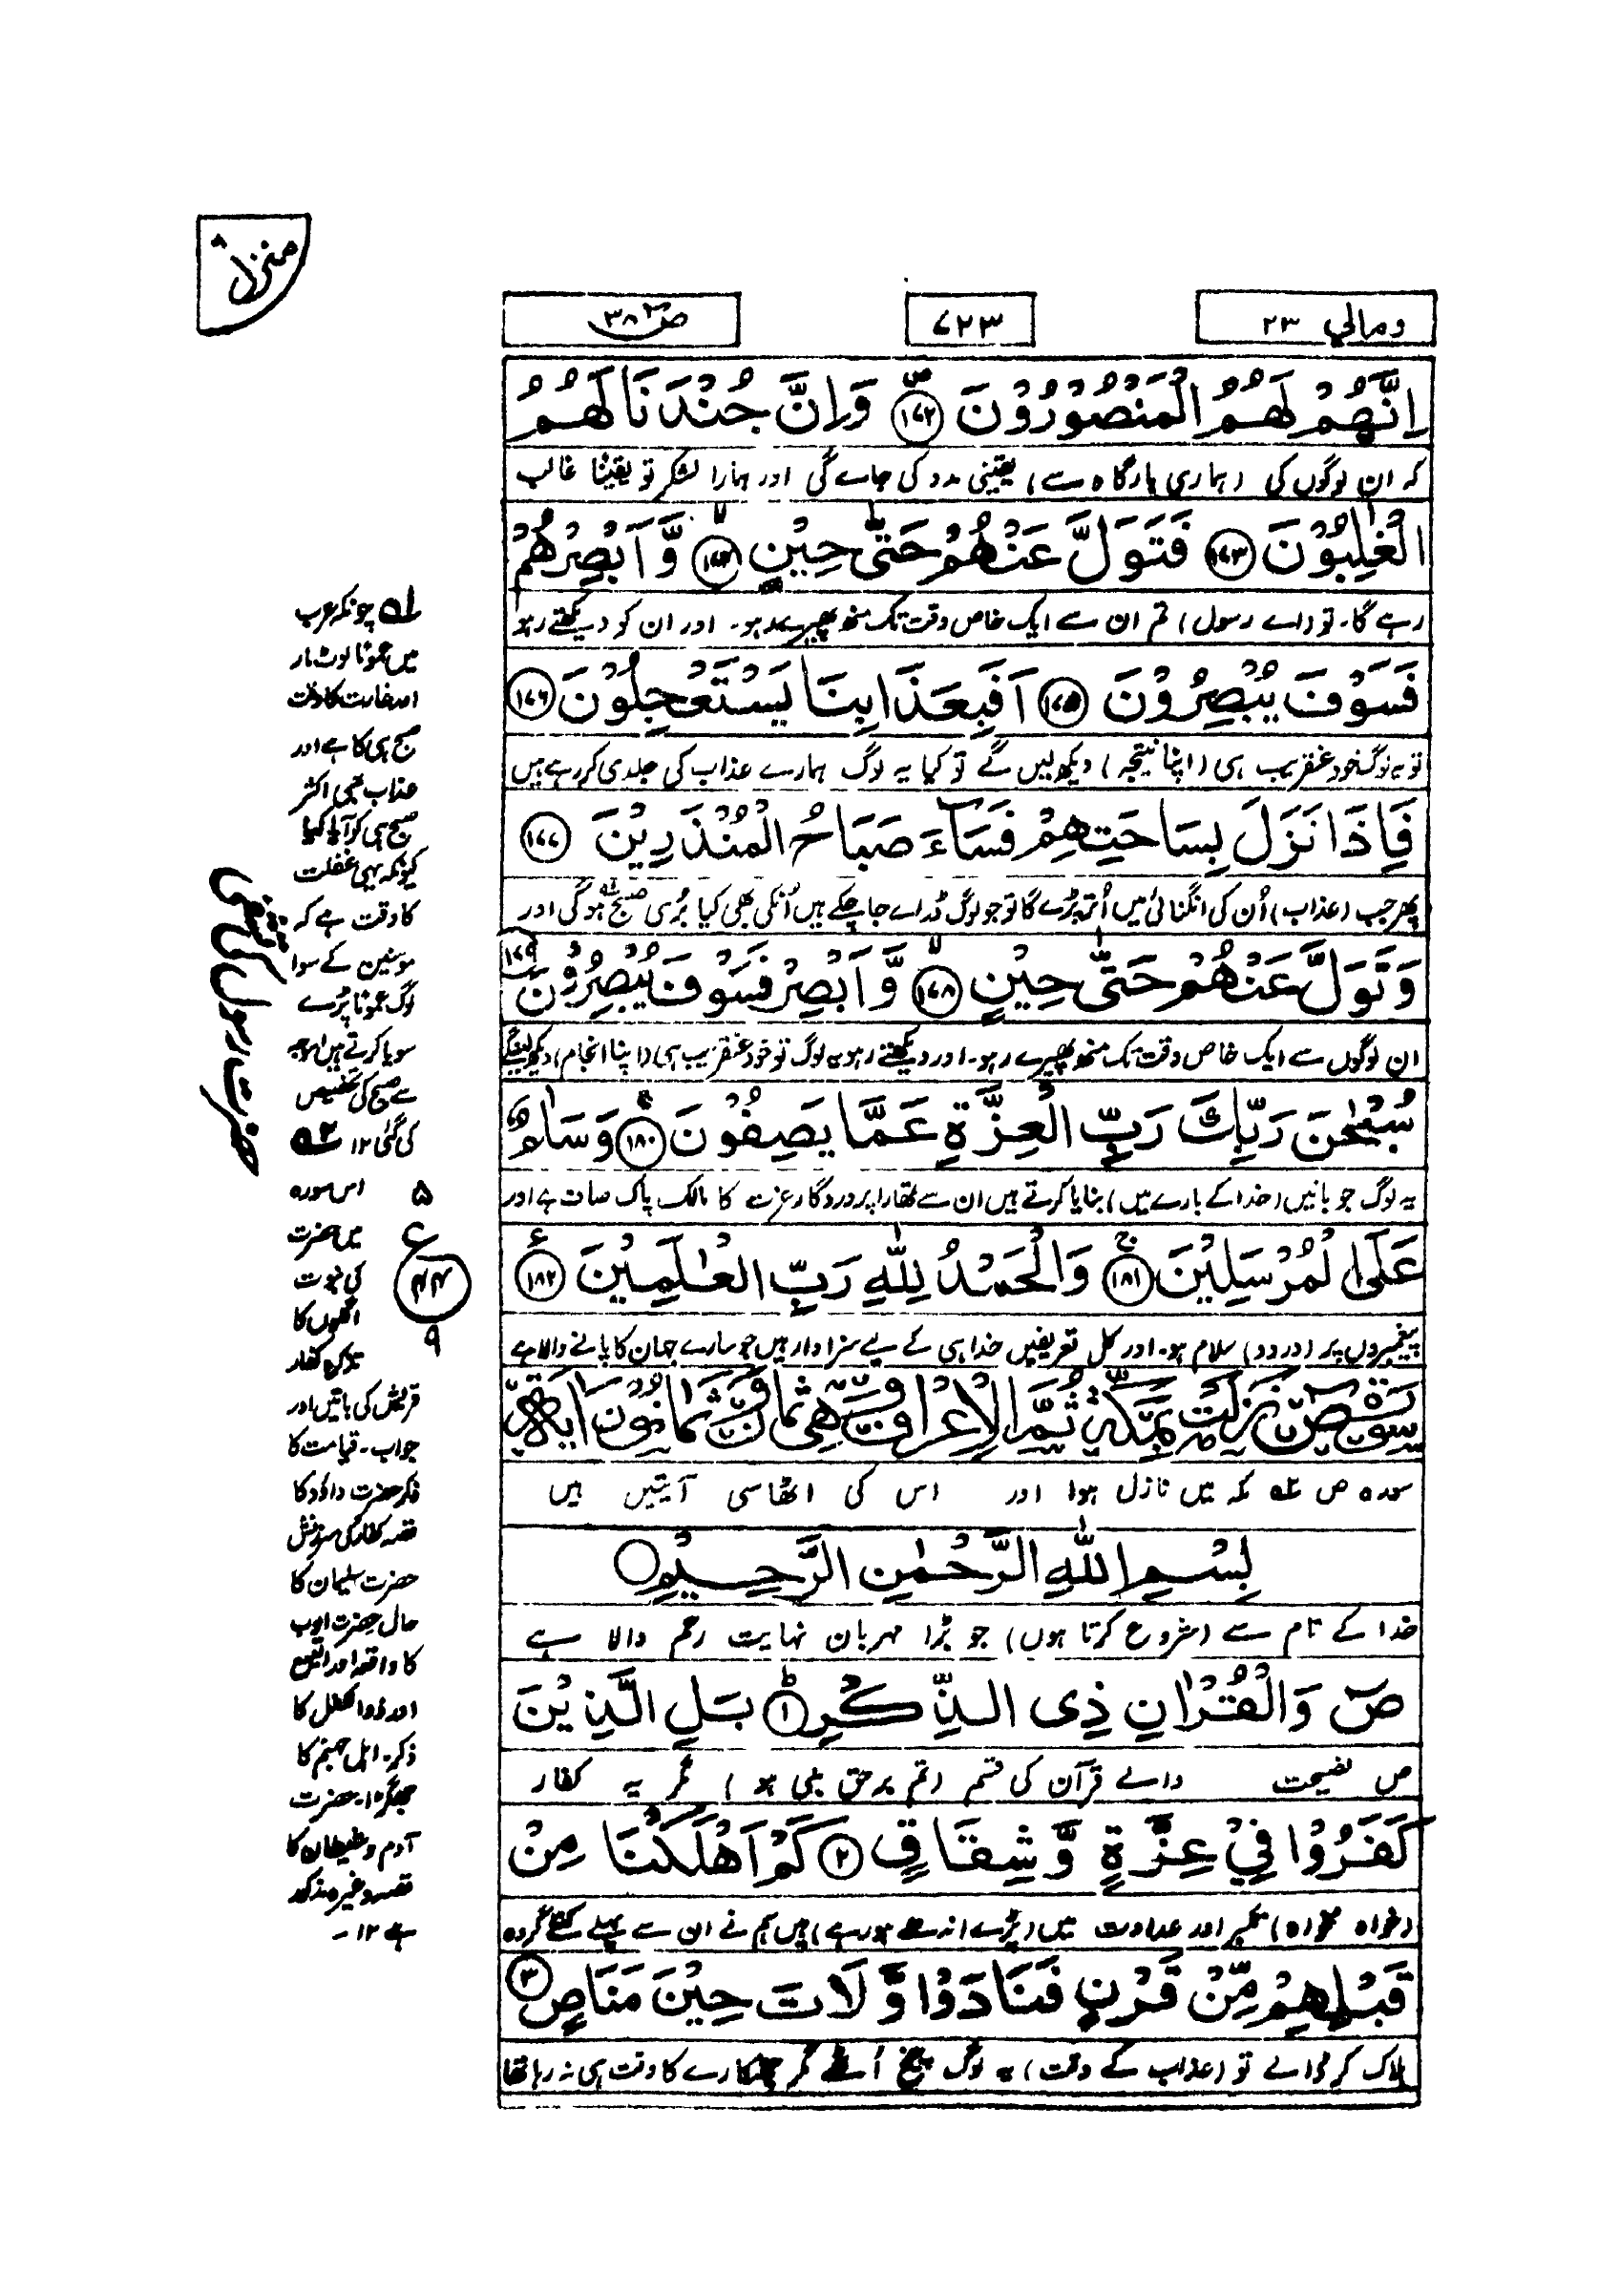 منزل
ومالي ٢٣
٧٢٣
ص ٣٨
اِنَّهُمْ لَهُمُ الْمَنْصُوْرُوْنَ ١٧٢ وَاِنَّ جُنْدَنَا لَهُمُ
کہ ان لوگوں کی (ہماری بارگاہ سے) یقینی مدد کی جائے گی اور ہمارا لشکر تو یقیناً غالب
الْغٰلِبُوْنَ ١٧٣ فَتَوَلَّ عَنْهُمْ حَتّٰى حِيْنٍ ١٧٤ وَّاَبْصِرْهُمْ
رہے گا۔ تو (اے رسول) تم ان سے ایک خاص وقت تک منھ پھیرے رہو۔ اور ان کو دیکھتے رہو
فَسَوْفَ يُبْصِرُوْنَ ١٧٥ اَفَبِعَذَابِنَا يَسْتَعْجِلُوْنَ ١٧٦
تو یہ لوگ خود عنقریب ہی (اپنا نتیجہ) دیکھ لیں گے تو کیا یہ لوگ ہمارے عذاب کی جلدی کر رہے ہیں
فَاِذَا نَزَلَ بِسَاحَتِهِمْ فَسَآءَ صَبَاحُ الْمُنْذَرِيْنَ ١٧٧
پھر جب (عذاب) اُن کی انگنائی میں اُتر پڑے گا تو جو لوگ ڈرائے جا چکے ہیں اُنکی بھی کیا بُری صبح ہوگی اور
وَتَوَلَّ عَنْهُمْ حَتّٰى حِيْنٍ ١٧٨ وَّاَبْصِرْ فَسَوْفَ يُبْصِرُوْنَ ١٧٩
ان لوگوں سے ایک خاص وقت تک منھ پھیرے رہو۔ اور دیکھتے رہو یہ لوگ تو خود عنقریب ہی (اپنا انجام) دیکھ لینگے
سُبْحٰنَ رَبِّكَ رَبِّ الْعِزَّةِ عَمَّا يَصِفُوْنَ ١٨٠ وَسَلٰمٌ
یہ لوگ جو باتیں (خدا کے بارے میں) بنایا کرتے ہیں ان سے تمھارا پروردگار عزت کا مالک پاک صاف ہے اور
عَلَى الْمُرْسَلِيْنَ ١٨١ وَالْحَمْدُ لِلّٰهِ رَبِّ الْعٰلَمِيْنَ ١٨٢
پیغمبروں پر (درود) سلام ہو۔ اور کل تعریفیں خدا ہی کے لیے سزاوار ہیں جو سارے جہان کا پالنے والا ہے
سورة ص نزلت بمكة ثم الاعراف وهي ثمان وثمانون اية
سورہ ص مکہ میں نازل ہوا اور اس کی اٹھاسی آیتیں ہیں
بِسْمِ اللّٰهِ الرَّحْمٰنِ الرَّحِيْمِ
خدا کے نام سے (شروع کرتا ہوں) جو بڑا مہربان نہایت رحم والا ہے
صٓ وَالْقُرْاٰنِ ذِى الذِّكْرِ ١ بَلِ الَّذِيْنَ
ص نصیحت والے قرآن کی قسم (تم برحق نبی ہو) مگر یہ کفار
كَفَرُوْا فِيْ عِزَّةٍ وَّشِقَاقٍ ٢ كَمْ اَهْلَكْنَا مِنْ
(خواہ مخواہ) تکبر اور عداوت میں (پڑے اندھے ہو رہے) ہیں ہم نے ان سے پہلے کتنے گروہ
قَبْلِهِمْ مِّنْ قَرْنٍ فَنَادَوْا وَّلَاتَ حِيْنَ مَنَاصٍ ٣
ہلاک کر ڈالے تو (عذاب کے وقت) یہ لوگ چیخ اُٹھے مگر چھٹکارے کا وقت ہی نہ رہا تھا
ؔ۱ چونکہ عرب
میں عموماً لوٹ مار
اور غارت کا وقت
صبح ہی کا ہے اور
عذاب بھی اکثر
صبح ہی کو آیا کیا
کیونکہ یہی غفلت
کا وقت ہے کہ
مومنین کے سوا
لوگ عموماً پڑے
سویا کرتے ہیں اسوجہ
سے صبح کی تخصیص
کی گئی ١٢ ؔ۲
اس سورہ
میں حضرت
کی نبوت
اگلوں کا
تذکرہ کفار
قریش کی باتیں اور
جواب۔ قیامت کا
ذکر حضرت داؤد کا
قصہ کفار کی سرزنش
حضرت سلیمان کا
حال حضرت ایوب
کا واقعہ اور الیسع
اور ذوالکفل کا
ذکر۔ اہل جہنم کا
جھگڑا۔ حضرت
آدم و شیطان کا
قصہ وغیرہ مذکور
ہے ١٢۔
٥
ع
٩
حضرت رسول کی تشفی